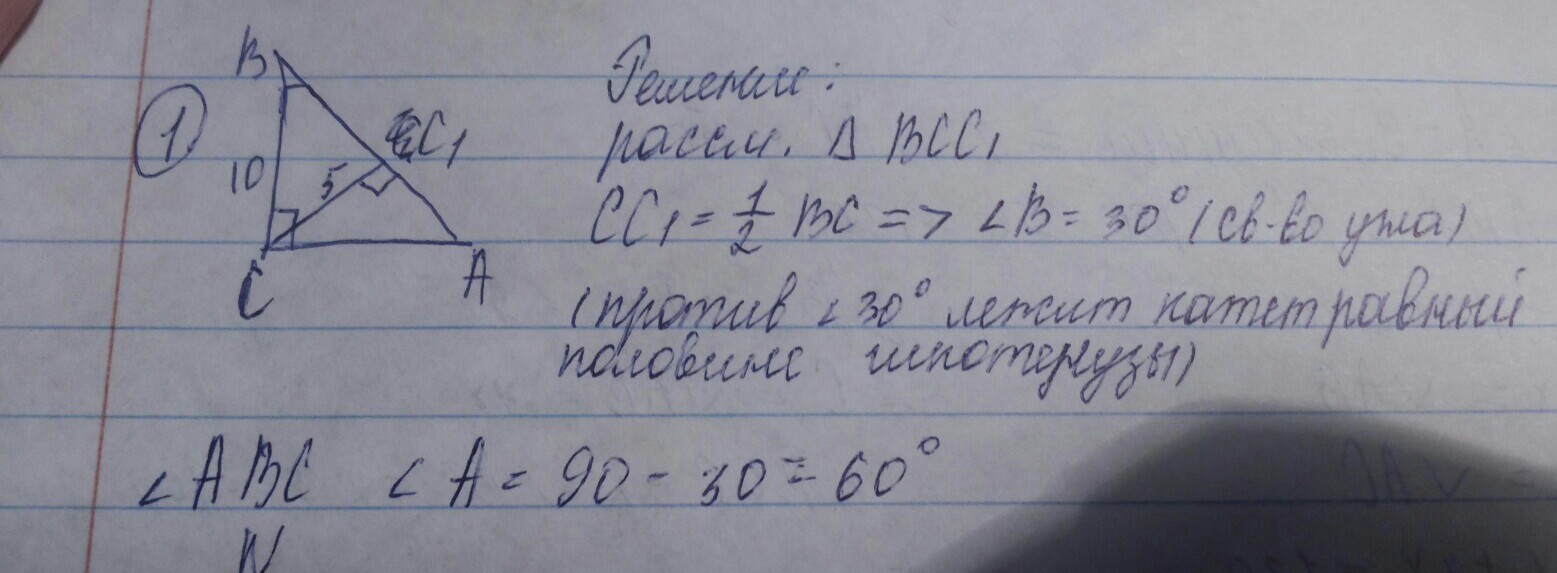 1
B
C1
10
5
C
A
Решение:
рассм. Δ BCC1
CC1 = 1/2 BC => ∠B = 30° (св-во угла)
(против ∠30° лежит катет равный
половине гипотенузы)
∠ABC ∠A = 90 - 30 = 60°
N